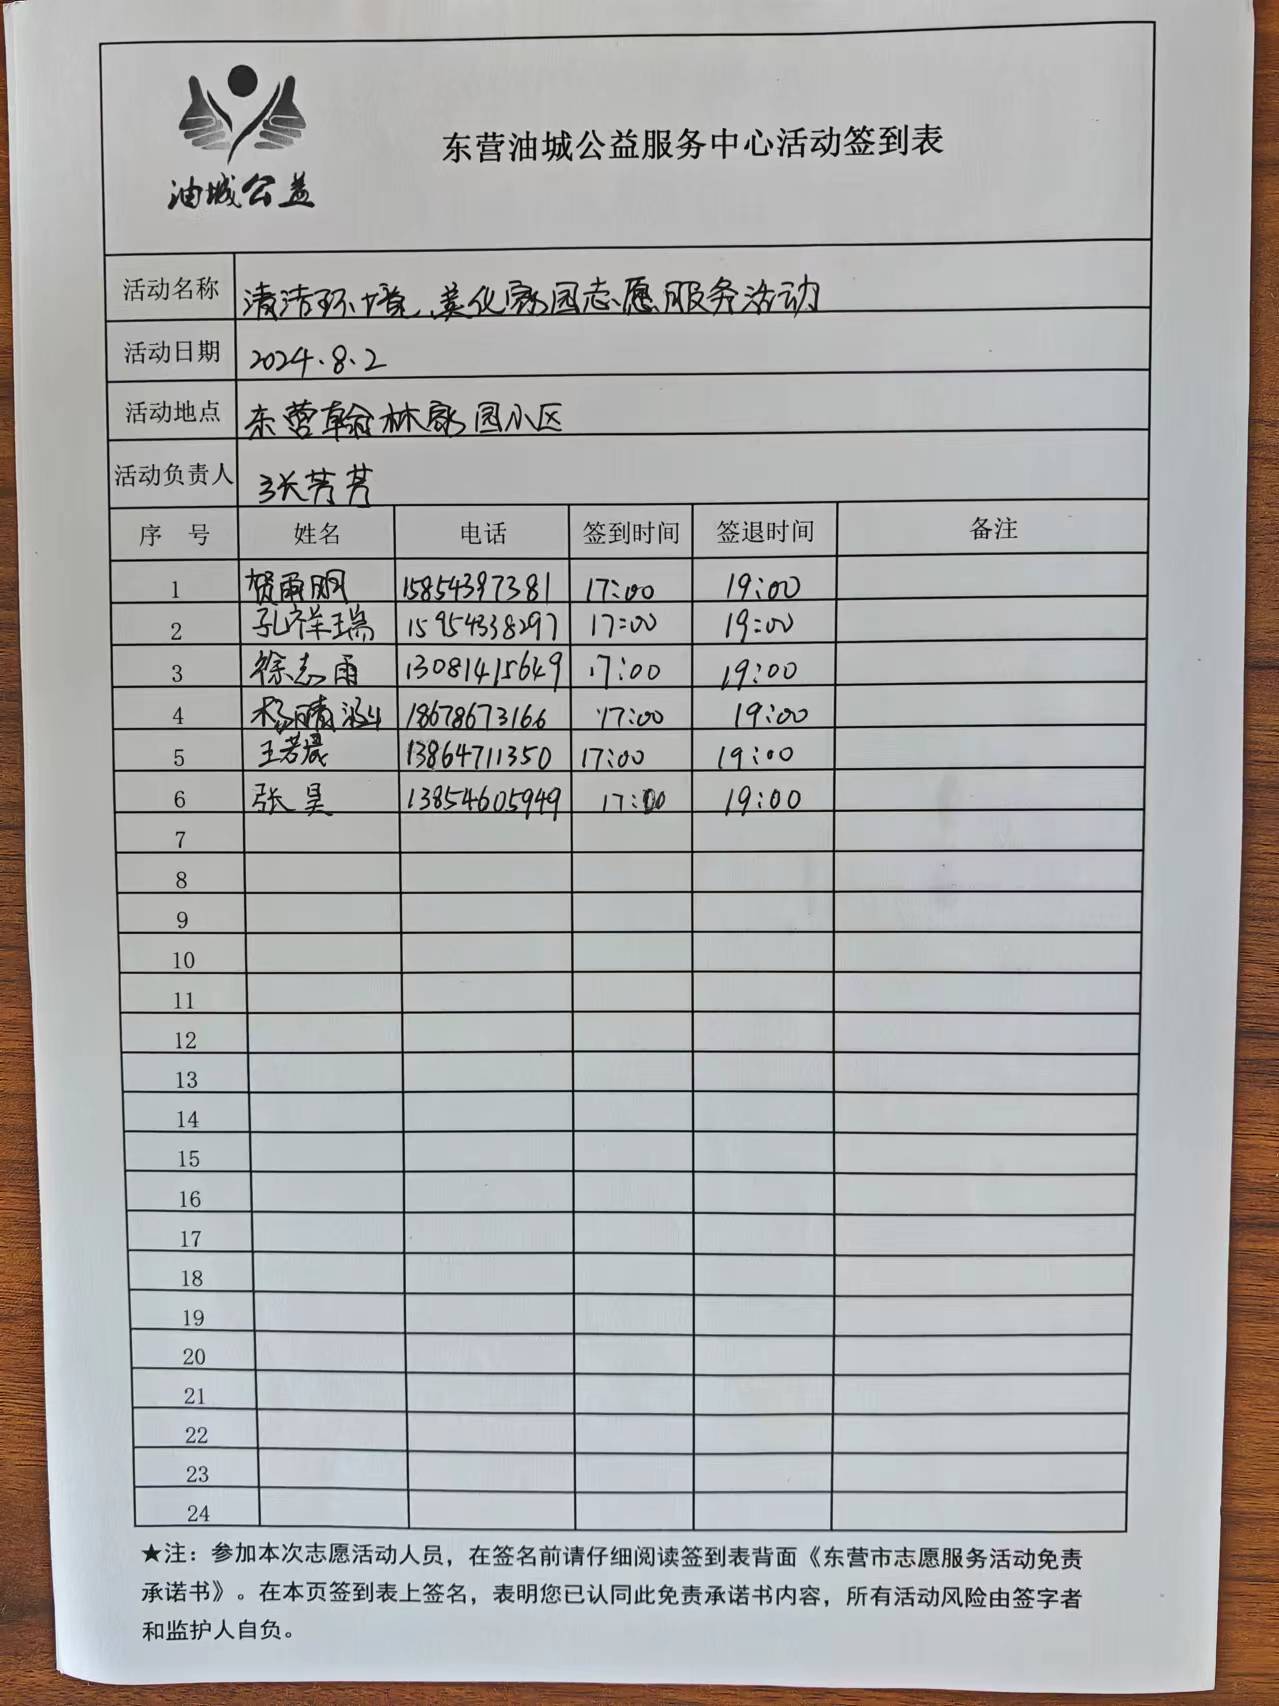 油城公益
东营油城公益服务中心活动签到表
活动名称 清洁环境,美化家园志愿服务活动
活动日期 2024.8.2
活动地点 东营翰林家园小区
活动负责人 张芳芳
序 号 姓名 电话 签到时间 签退时间 备注
1 贺雨朋 15854397381 17:00 19:00
2 孔祥瑞 15954338297 17:00 19:00
3 徐志雨 13081415649 17:00 19:00
4 杨晴 18678673166 17:00 19:00
5 王若晨 13864711350 17:00 19:00
6 张昊 13854605949 17:00 19:00
7
8
9
10
11
12
13
14
15
16
17
18
19
20
21
22
23
24
★注：参加本次志愿活动人员，在签名前请仔细阅读签到表背面《东营市志愿服务活动免责
承诺书》。在本页签到表上签名，表明您已认同此免责承诺书内容，所有活动风险由签字者
和监护人自负。